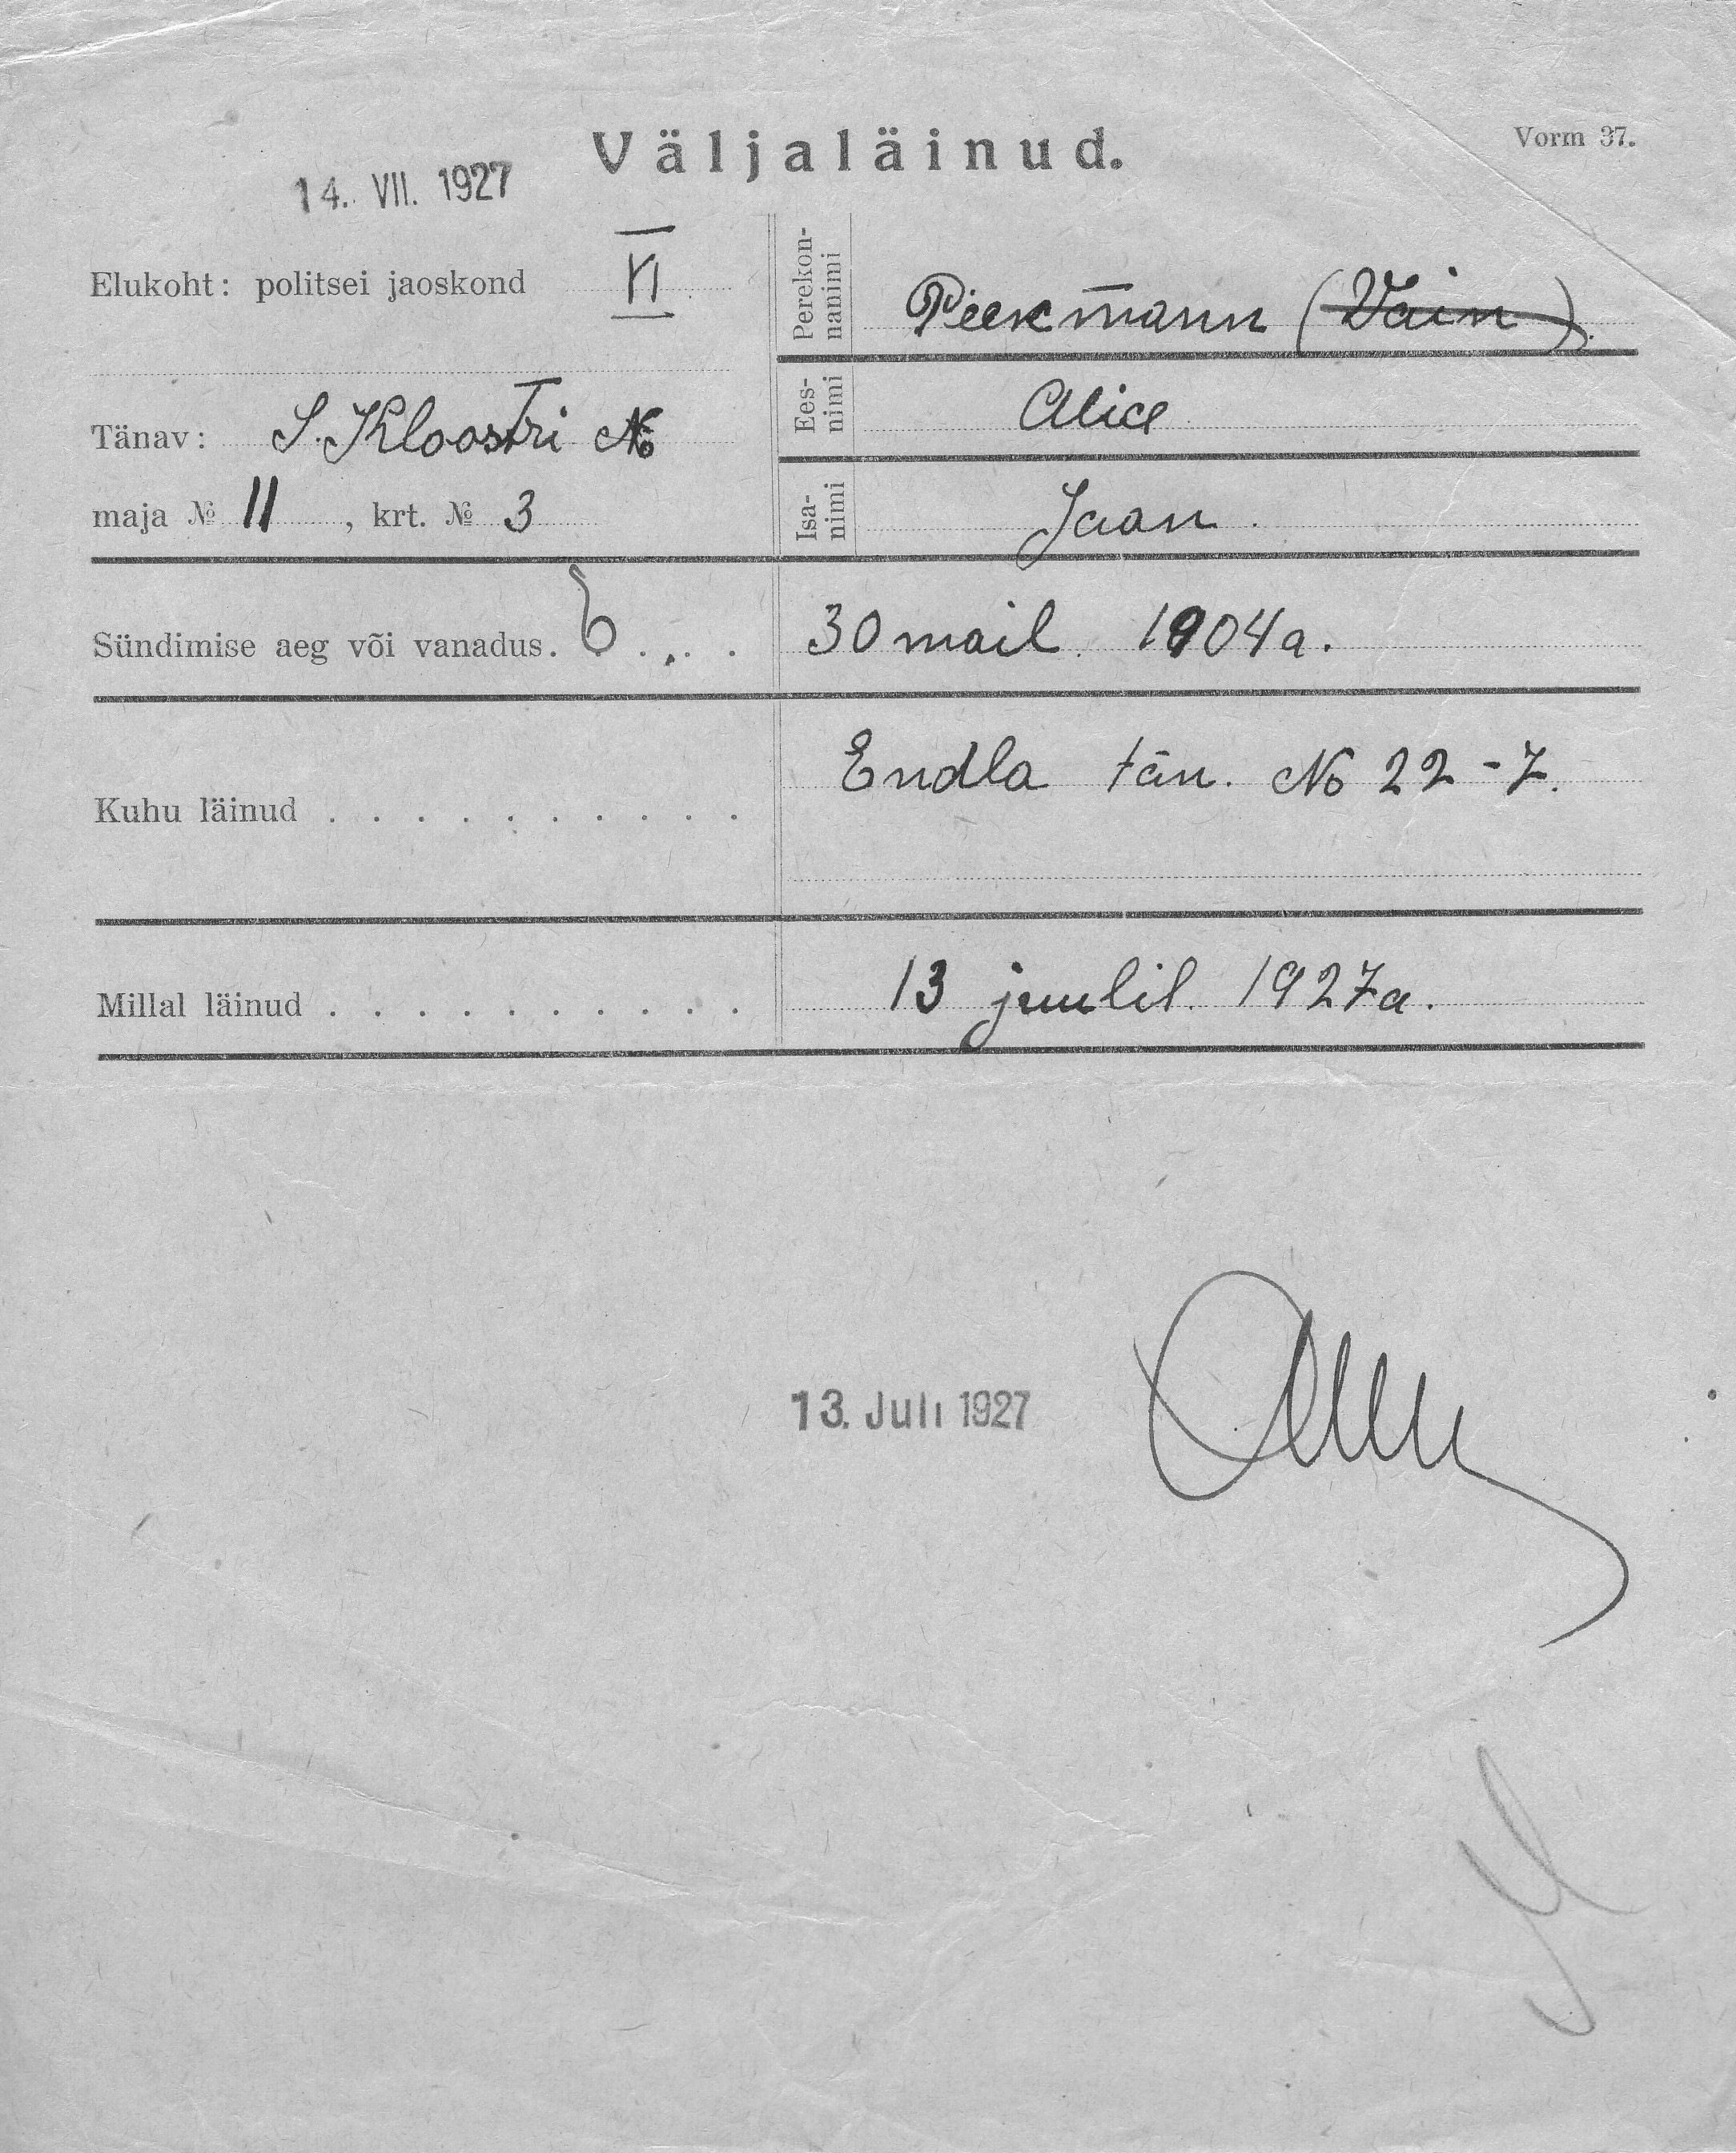 Väljaläinud.
Vorm 37.
14. VII. 1927
Elukoht: politsei jaoskond VI
Tänav: S. Kloostri №
maja № 11, krt. № 3
Perekon-
nanimi
Peekmann (Vain).
Ees-
nimi
Alice
Isa-
nimi
Jaan.
Sündimise aeg või vanadus. 30 mail. 1904 a.
Kuhu läinud . . . . . . . . . . Endla tän. № 22-7.
Millal läinud . . . . . . . . . . 13 juulil. 1927 a.
13. Juli 1927